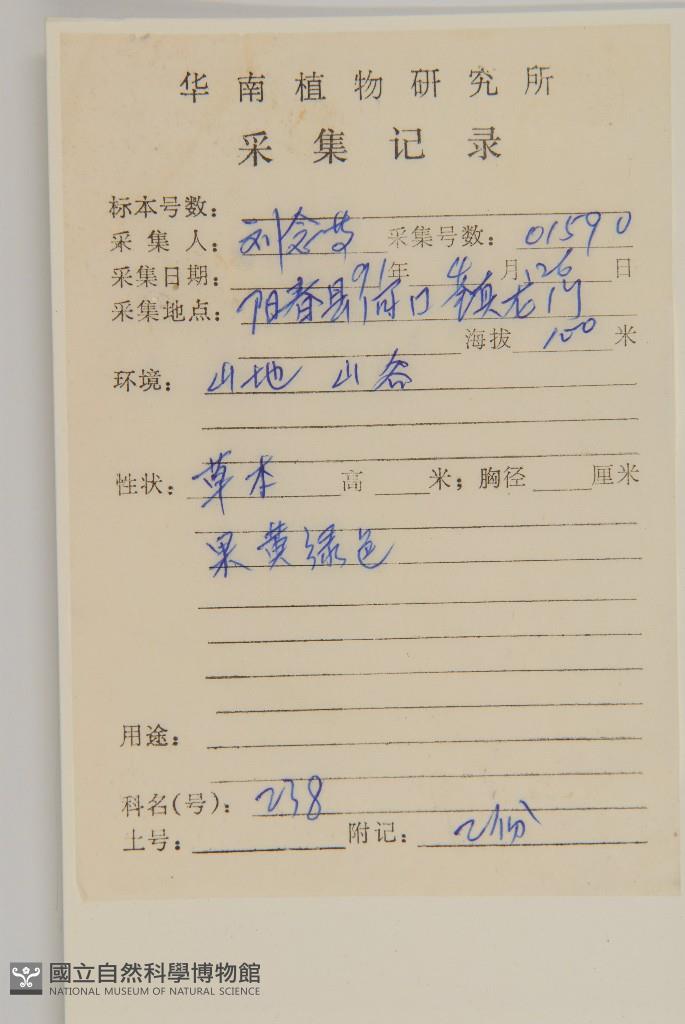 华南植物研究所
采集记录
标本号数：
采集人：刘念 采集号数：01590
采集日期：91年4月26日
采集地点：阳春县河口镇龙门
海拔100米
环境：山地 山谷
性状：草本 高 米；胸径 厘米
果黄绿色
用途：
科名(号)：238
土号： 附记：2份
國立自然科學博物館
NATIONAL MUSEUM OF NATURAL SCIENCE